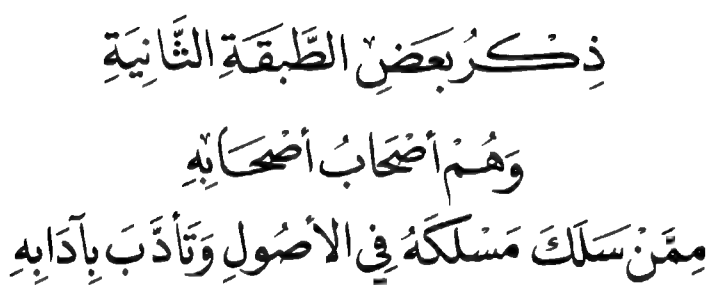 ذِكْرُ بَعْضِ الطَّبَقَةِ الثَّانِيَةِ
وَهُمْ أَصْحَابُ أَصْحَابِهِ
مِمَّنْ سَلَكَ مَسْلَكَهُ فِي الأصُولِ وَتَأَدَّبَ بِآدَابِهِ